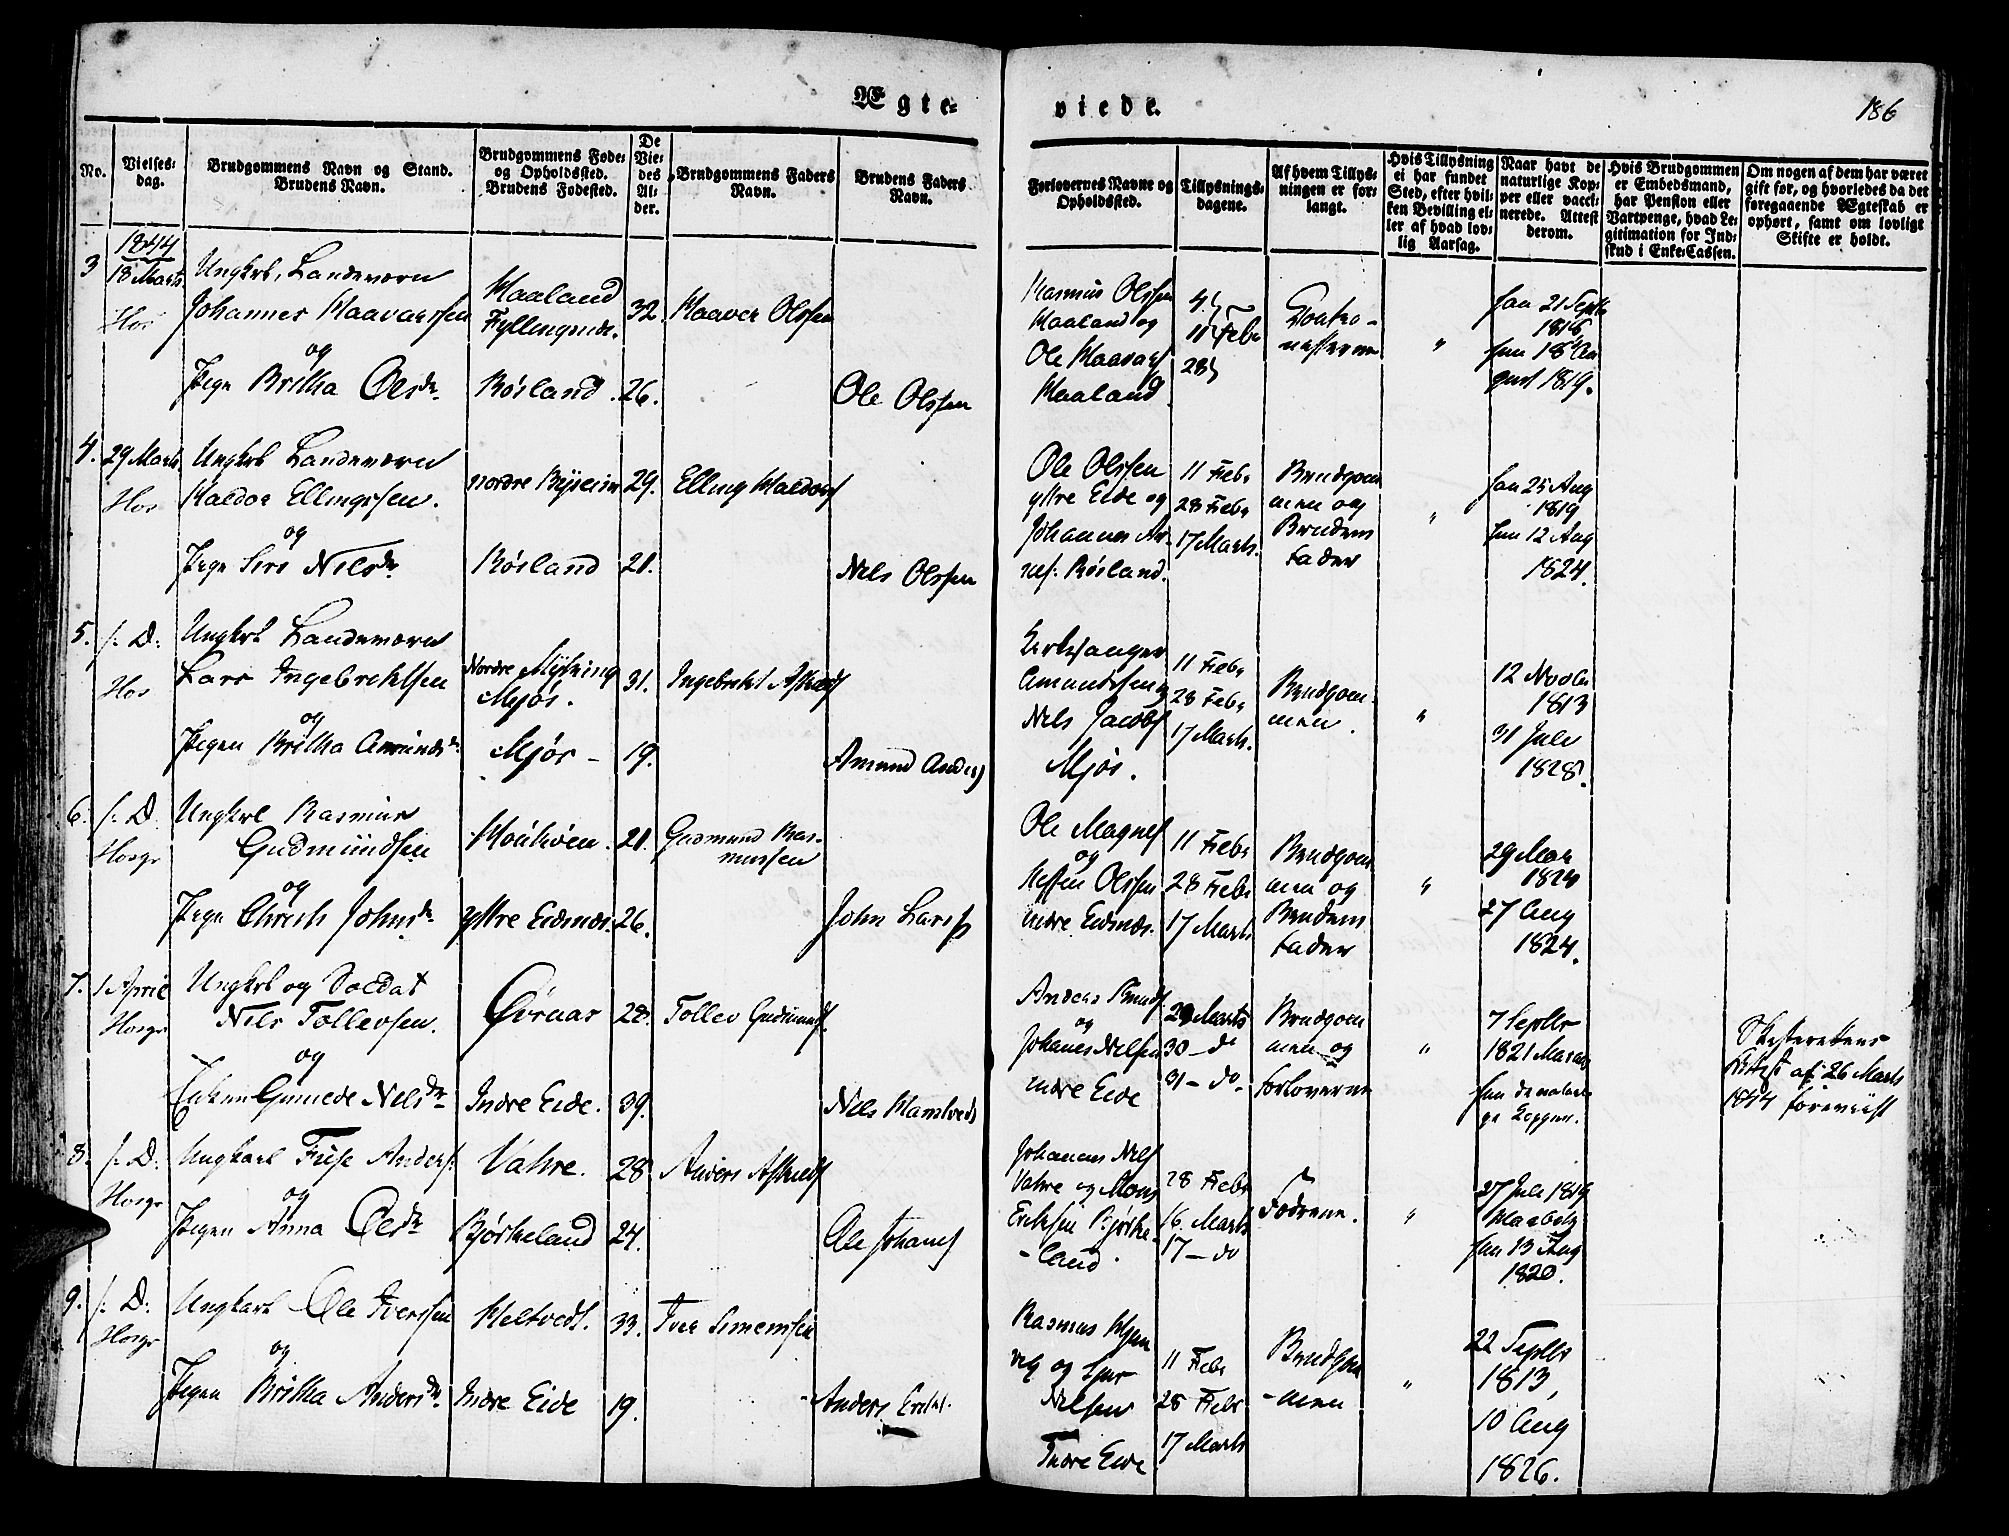 Ægte-
viede.
186
No.
Vielses-
dag.
Brudgommens Navn og Stand.
Brudens Navn.
Brudgommens Føde-
og Opholdssted.
Brudens Fødested.
De
Vie-
des
Al-
der.
Brudgommens Faders
Navn.
Brudens Faders
Navn.
Forlovernes Navne og
Opholdssted.
Tillysnings-
dagene.
Af hvem Tillys-
ningen er for-
langt.
Hvis Tillysning
ei har fundet
Sted, efter hvil-
ken Bevilling el-
ler af hvad lov-
lig Aarsag.
Naar havt de
naturlige Kop-
per eller vacci-
nerede. Attest
derom.
Hvis Brudgommen
er Embedsmand,
har Pension eller
Vartpenge, hvad Le-
gitimation for Ind-
skud i Enke-Cassen.
Om nogen af dem har været
gift før, og hvorledes da det
foregaaende Ægteskab er
ophørt, samt om lovligt
Skifte er holdt.
1844
3
18 Marts
Hos
Ungkrl, Landeværn
Johannes Haavarssen
og
Pige Britha Olsdr
Haaland
Fyllingsnds.
Røsland
32.
26.
Haaver Olssen
Ole Olssen
Rasmus Olssen
Haaland og
Ole Haavars
Haaland
4.
11 Febr
28
han 21 Septb
1816
hun 18 Au
gust 1819.
4.
29 Marts
Hos
Ungkrl Landeværn
Haldor Ellingssen.
og
Pige Siri Nilsdr
nordre Bysheim
Røsland
29.
21.
Elling Haldors
Nels Olssen
Ole Olssen
yttre Eide og
Johannes Ar-
nes. Røsland.
11 Febr
28 Febr
17 Marts.
Brudgom
men og
Brudens
Fader
"
han 25 Aug
1819
hun 12 Aug
1824.
5.
s. D.
Hos
Ungkrl Landeværn
Lars Ingebrektsen
og
Pigen Britha Amundsdr.
Nordre Mysning
Mjøs.
Mjøs -
31.
19.
Ingebrekt Askiels
Amund Anders
Kirkesanger
Amundsen og
Nels Jacobs
Mjøs.
11 Febr
28 Febr
17 Marts.
Brudgom-
men.
"
12 Novbr
1813
31 Juli
1828.
6.
s. D.
Hosgr
Ungkrl Rasmus
Gudmundsen
og
Pige Christi Johnsdr
yttre Eidsnæs.
21.
26.
Gudmund Ras-
mussen
John Larss
Ole Magnes
og
Steffen Olssen
indre Eidsnæs.
11 Febr
28 Febr
17 Marts
Brudgom
men og
Brudens
Fader
"
29 Mar
1824
27 Aug
1824.
7.
1 April
Hosgr
Ungkrl og Soldat
Nils Tollevsen.
og
Enken Gunilde Nelsdr
Øvraas
Indre Eide.
28.
39.
Tollev Gudmunds.
Nels Hamlveds
Anders Knuds
og
Johanes Nelsen
indre Eide
29 Marts
30 - do
31 - do -
Brudgom
men og
Forloverne
"
7 Septbr
1821
hun de naturli
ge Kopper.
Skifterettens
Attest af 26 Marts
1844 foreviist
8.
s. D.
Hosgr
Ungkarl Fuse Anders.
og
Pigen Anna Olsdr
Vahre.
Bjørkeland
28
24.
Anders Askiels
Ole Johans
Johannes Nels
Vahre og Mons
Eriksen Bjørke-
-land.
28 Febr
16. Marts
17 - do
Fædrene.
"
27 Juli 1819
hun 13 Aug
1820.
9.
s. D.
Hosgr
Ungkarl Ole Iverssen
og
Pigen Britha Andersdr.
Heltvedt.
Indre Eide
33.
19.
Iver Simensen
Anders Erik.
Rasmus Hjen
vig og Siur
Nelsen
Indre Eide
11 Febr
28 Febr
17 Marts
Brudgom
-men
"
22 Septbr
1813,
10 Aug
1826.